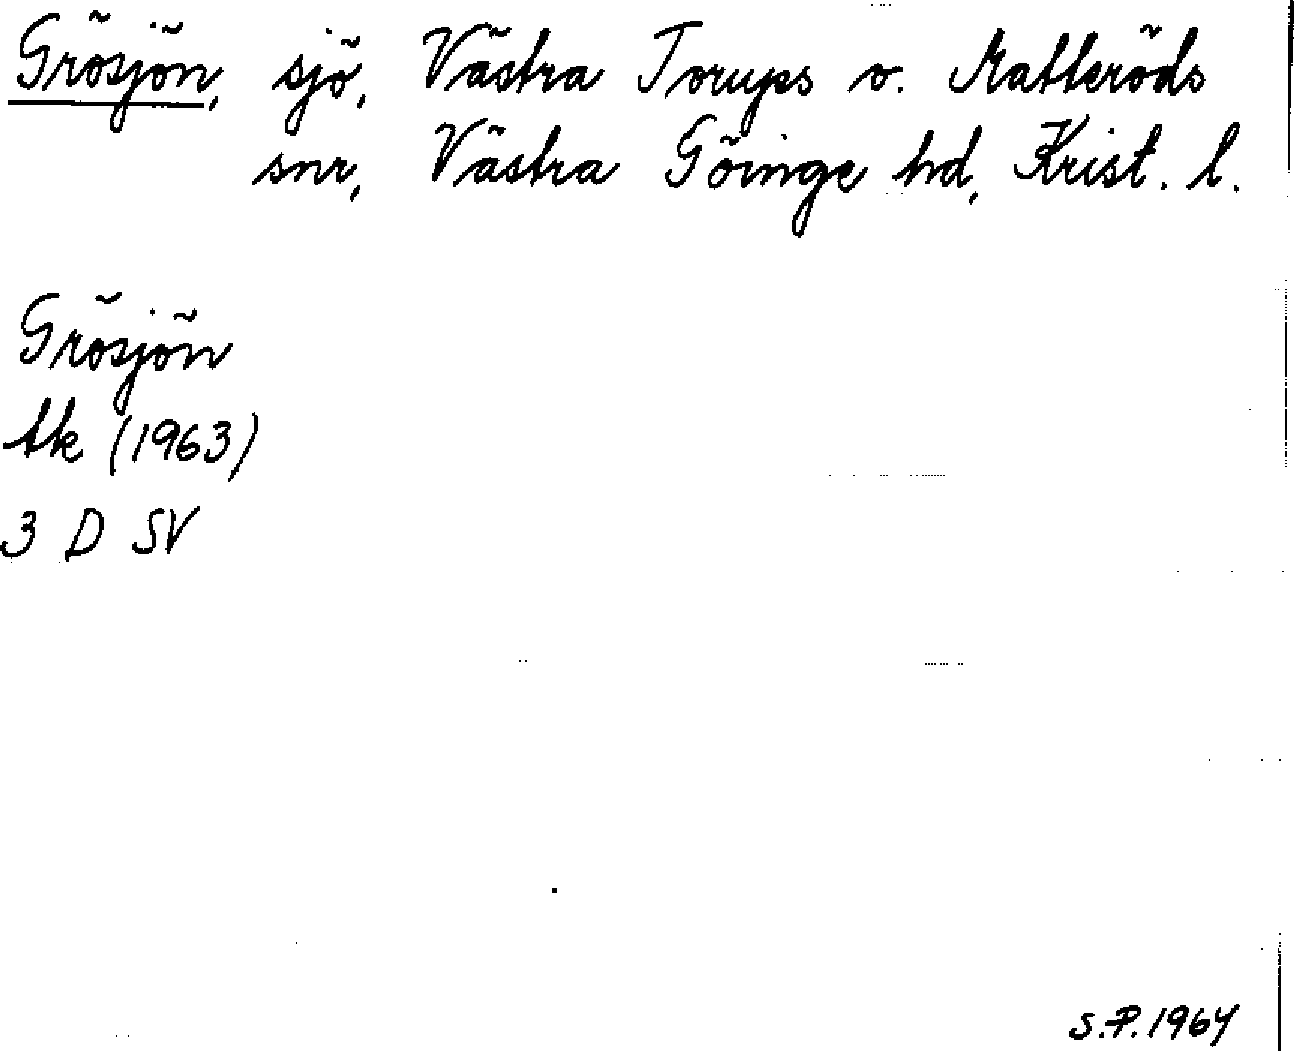 Grösjön, sjö, Västra Torups o. Matteröds
snr, Västra Göinge hd, Krist. l.
Grösjön
tk (1963)
3 D SV
S.P. 1964